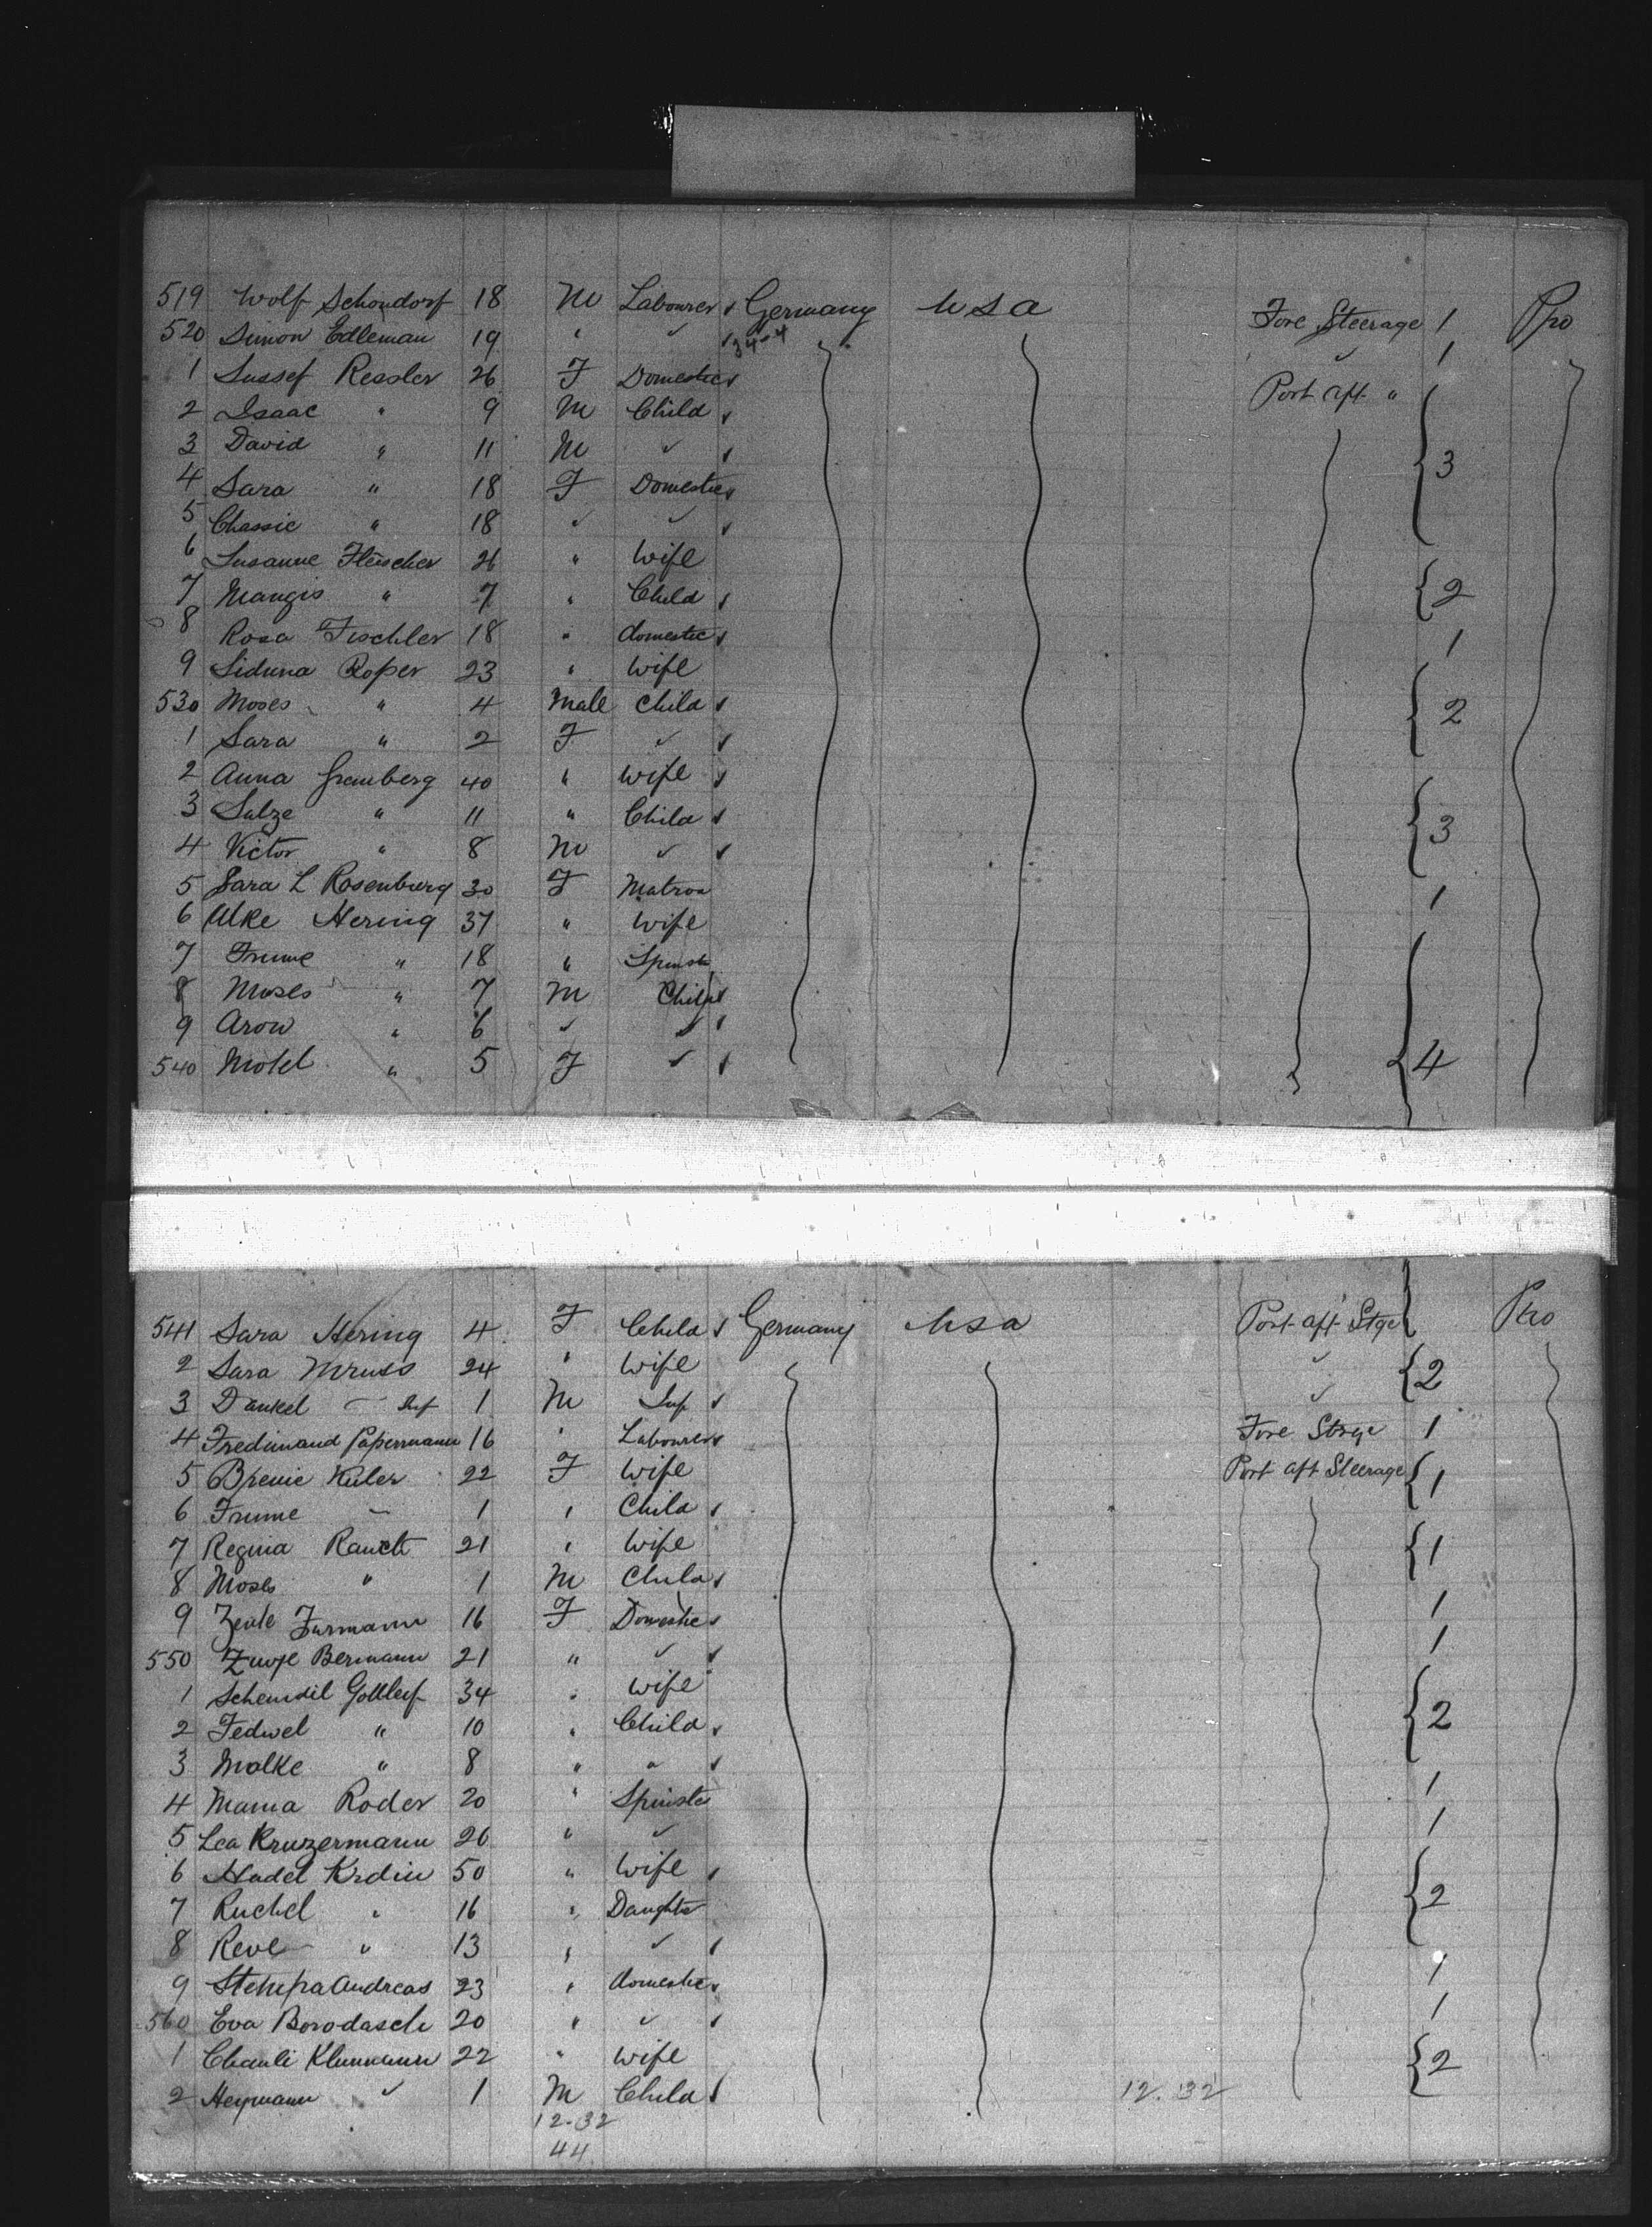 519 Wolf Schondorf 18 M Labourer Germany USA Fore Steerage 1 Pro
520 Simon Edleman 19 " " 34-4 " 1
1 Sussef Ressler 26 F Domestic Port aft "
2 Isaac " 9 M Child
3 David " 11 M " 3
4 Sara " 18 F Domestic
5 Chassie " 18 " "
6 Susanne Fleischer 26 " Wife
7 Mangis " 7 " Child 2
8 Rosa Fischler 18 " domestic 1
9 Siduna Roper 23 " Wife
530 Moses " 4 Male Child 2
1 Sara " 2 F "
2 Anna Gramberg 40 " Wife
3 Salze " 11 " Child 3
4 Victor " 8 M "
5 Sara L Rosenburg 30 F Matron 1
6 Alke Hering 37 " Wife
7 Frume " 18 " Spinst
8 Moses " 7 M Child
9 Arow " 6 " "
540 Motel " 5 F " 4
541 Sara Hering 4 F Child Germany USA Port aft Stge Pro
2 Sara Mruss 24 " Wife " 2
3 Dankel — Inf 1 M Inf "
4 Fredinand Papermann 16 " Labourer Fore Stge 1
5 Brenie Kuler 22 F Wife Port aft Steerage 1
6 Frume " 1 " Child
7 Regina Rauch 21 " Wife 1
8 Moses " 1 M Child
9 Zeule Furmann 16 F Domestic 1
550 Zuwje Bermann 21 " " 1
1 Scheindil Gottleif 34 " Wife
2 Fedwel " 10 " Child 2
3 Malke " 8 " "
4 Mama Roder 20 " Spinste 1
5 Lea Kruzermann 26 " " 1
6 Hadel Krdin 50 " Wife
7 Ruchel " 16 " Daughte 2
8 Reve " 13 " "
9 Stempa Andreas 23 " domestic 1
560 Eva Borodasch 20 " " 1
1 Chanli Klunmann 22 " Wife 2
2 Heymann " 1 M Child 12.32
12-32
44